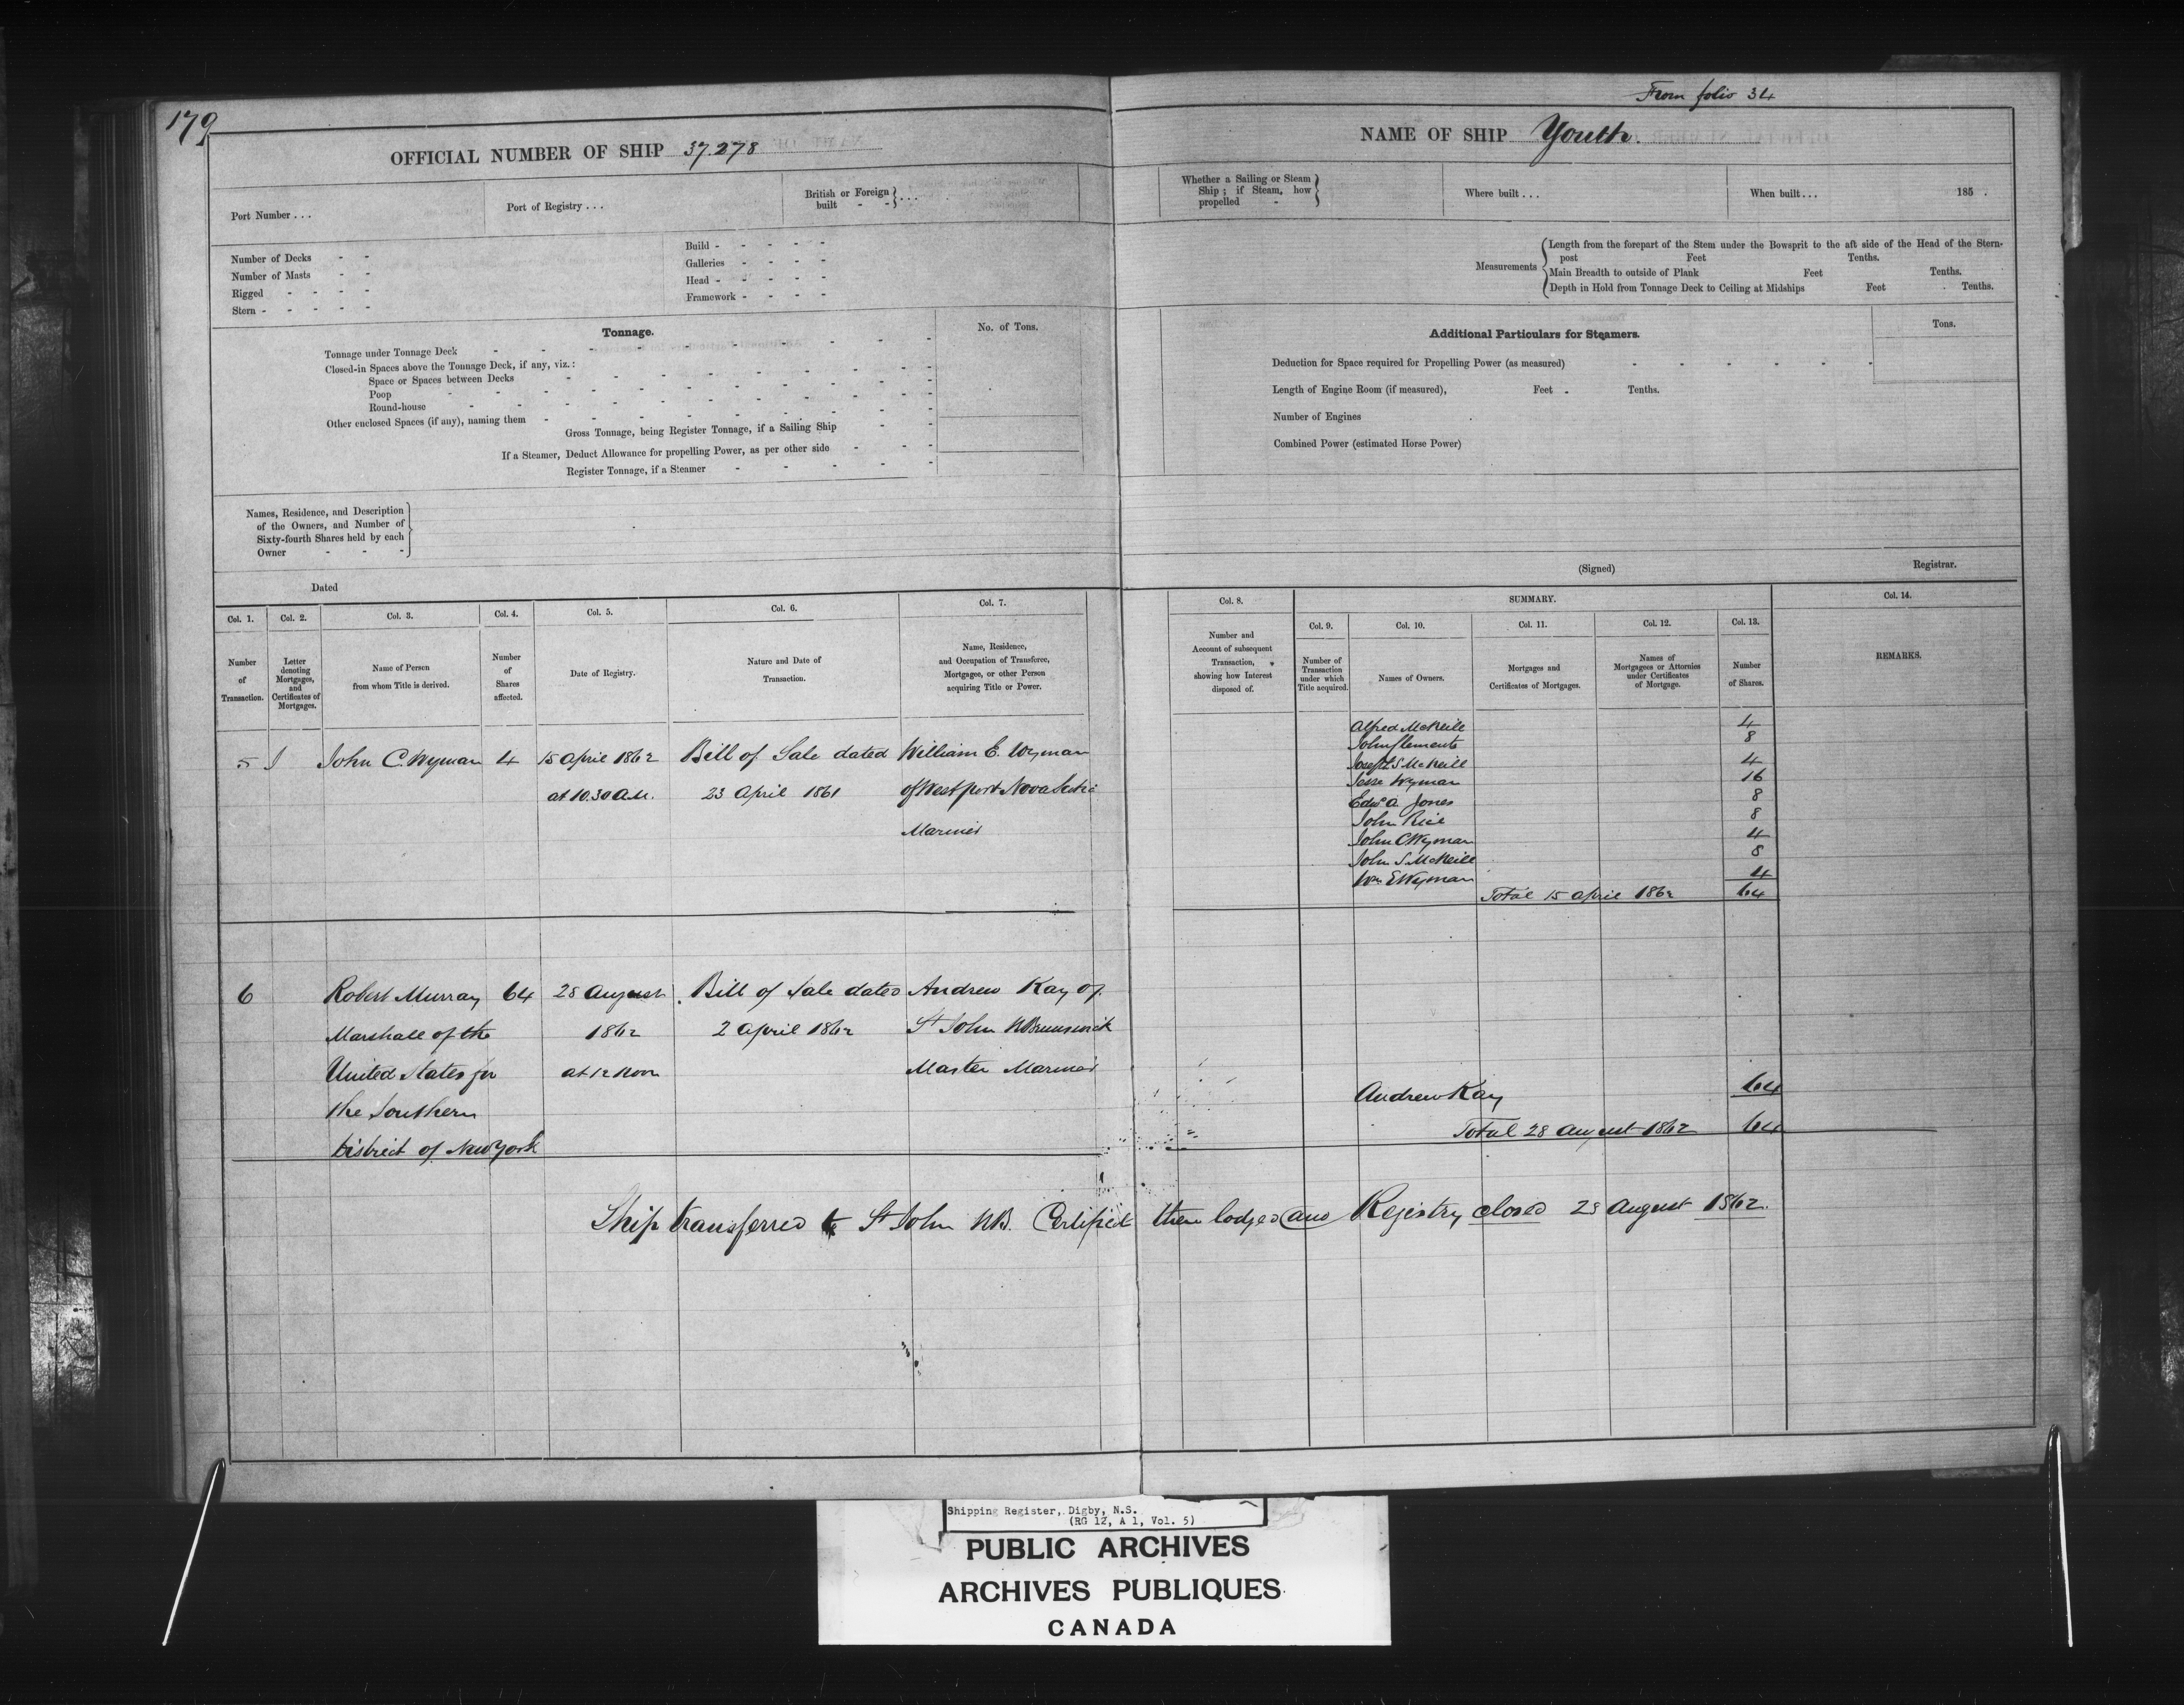 179
From folio 34
OFFICIAL NUMBER OF SHIP 37.278
NAME OF SHIP Youth.
Port Number . . .
Port of Registry . . .
British or Foreign built - - } . . .
Whether a Sailing or Steam Ship; if Steam, how propelled - }
Where built . . .
When built . . . 185 .
Number of Decks - -
Number of Masts - -
Rigged - - - -
Stern - - - - -
Build - - - - -
Galleries - - - -
Head - - - - -
Framework - - - -
Measurements
Length from the forepart of the Stem under the Bowsprit to the aft side of the Head of the Stern-
post Feet Tenths.
Main Breadth to outside of Plank Feet Tenths.
Depth in Hold from Tonnage Deck to Ceiling at Midships Feet Tenths.
Tonnage.
No. of Tons.
Tonnage under Tonnage Deck
Closed-in Spaces above the Tonnage Deck, if any, viz.:
Space or Spaces between Decks
Poop
Round-house
Other enclosed Spaces (if any), naming them
Gross Tonnage, being Register Tonnage, if a Sailing Ship
If a Steamer, Deduct Allowance for propelling Power, as per other side
Register Tonnage, if a Steamer
Additional Particulars for Steamers.
Tons.
Deduction for Space required for Propelling Power (as measured)
Length of Engine Room (if measured), Feet Tenths.
Number of Engines
Combined Power (estimated Horse Power)
Names, Residence, and Description
of the Owners, and Number of
Sixty-fourth Shares held by each
Owner - - -
Dated
(Signed) Registrar.
Col. 1. Col. 2. Col. 3. Col. 4. Col. 5. Col. 6. Col. 7.
Number of Transaction.
Letter denoting Mortgages, and Certificates of Mortgages.
Name of Person from whom Title is derived.
Number of Shares affected.
Date of Registry.
Nature and Date of Transaction.
Name, Residence, and Occupation of Transferee, Mortgagee, or other Person acquiring Title or Power.
Col. 8.
Number and Account of subsequent Transaction, showing how Interest disposed of.
SUMMARY.
Col. 9. Col. 10. Col. 11. Col. 12. Col. 13.
Number of Transaction under which Title acquired.
Names of Owners.
Mortgages and Certificates of Mortgages.
Names of Mortgagees or Attornies under Certificates of Mortgage.
Number of Shares.
Col. 14.
REMARKS.
5 John C. Wyman 4 15 April 1862 Bill of Sale dated William E. Wyman
at 10.30 a.m. 23 April 1861 of Westport Nova Scotia
Mariner
Alfred McNeill 4
John Clements 8
Joseph S McNeill 4
Jesse Wyman 16
Edwd A. Jones 8
John Rice 8
John C Wyman 4
John S. McNeill 8
Wm E Wyman 4
Total 15 April 1862 64
6 Robert Murray 64 28 August Bill of Sale dated Andrew Kay of
Marshall of the 1862 2 April 1862 St John N Brunswick
United States for at 12 Noon Master Mariner
the Southern
District of New York
Andrew Kay 64
Total 28 August 1862 64
Ship transferred to St John NB. Certificate there lodged and Registry closed 28 August 1862.
Shipping Register, Digby, N.S.
(RG 12, A 1, Vol. 5)
PUBLIC ARCHIVES
ARCHIVES PUBLIQUES
CANADA